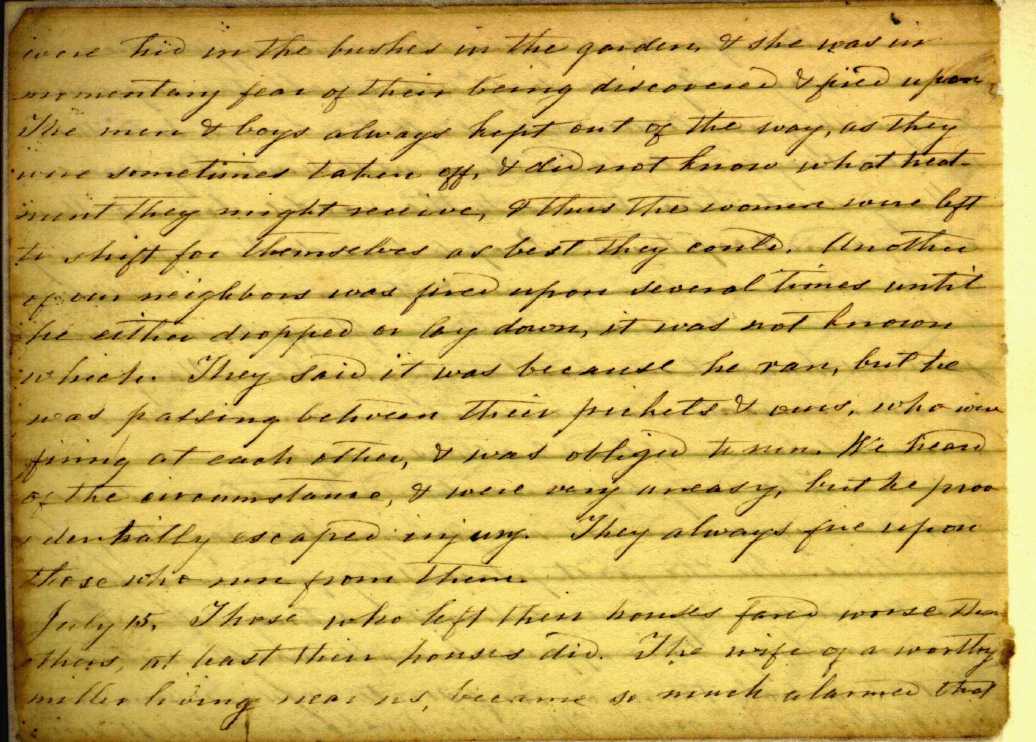 were hid in the bushes in the garden, & she was in
momentary fear of their being discovered & fired upon.
The men & boys always kept out of the way, as they
were sometimes taken off, & did not know what treat-
ment they might receive, & thus the women were left
to shift for themselves as best they could. Another
of our neighbors was fired upon several times until
he either dropped or lay down, it was not known
which. They said it was because he ran, but he
was passing between their pickets & ours, who were
firing at each other, & was obliged to run. We heard
of the circumstance, & were very uneasy, but he prov
identially escaped injury. They always fire upon
those who run from them.
July 15. Those who left their houses fared worse than
others, at least their houses did. The wife of a worthy
miller living near us, became so much alarmed that